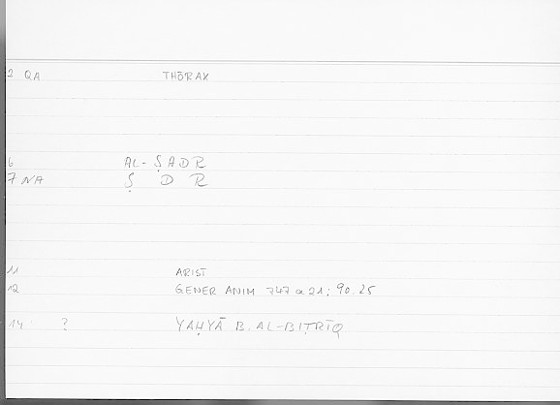 2 QA THŌRAX
6 AL-ṢADR
7 NA Ṣ D R
11 ARIST
12 GENER ANIM 747 a 21; 90.25
14 ? YAḤYĀ B. AL-BIṬRĪQ